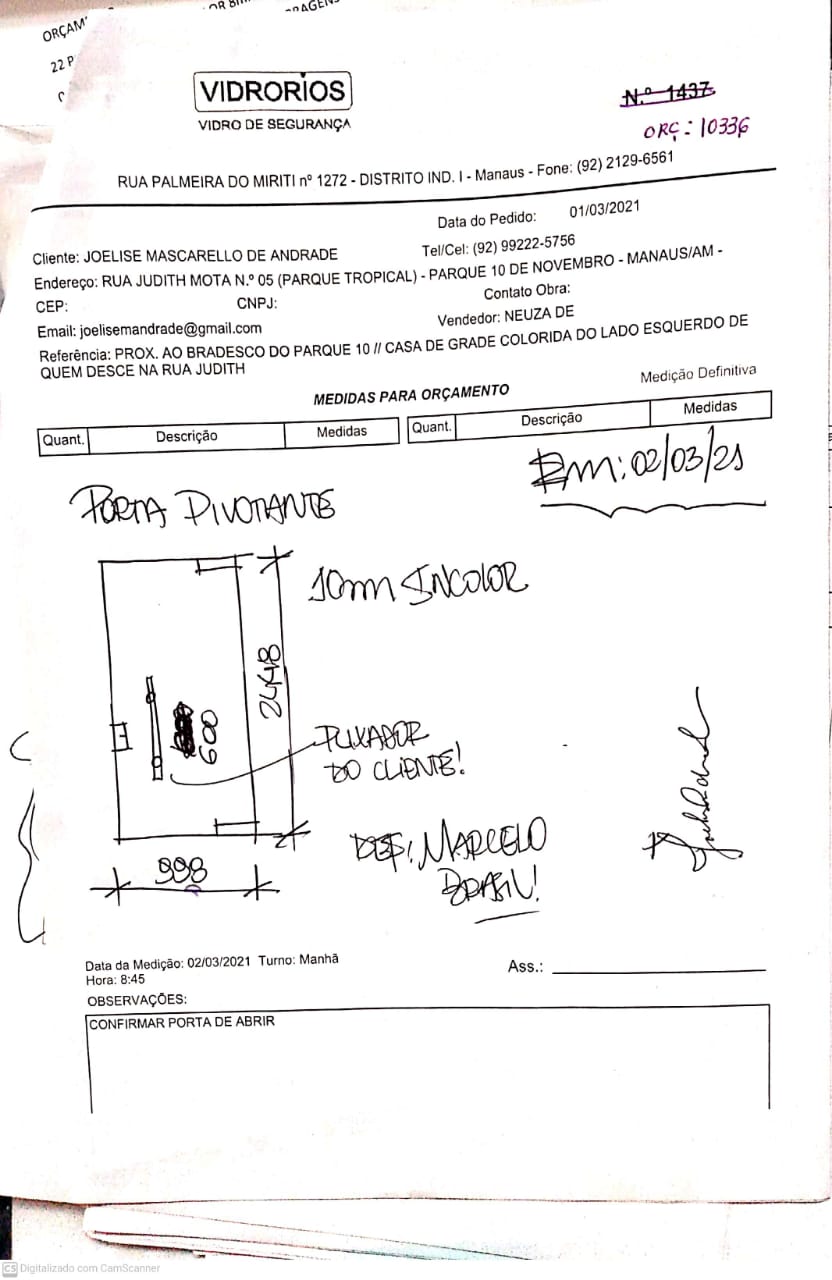 ORÇAM
22 P
VIDRORIOS
VIDRO DE SEGURANÇA
N.º 1437
ORÇ: 10336
RUA PALMEIRA DO MIRITI nº 1272 - DISTRITO IND. I - Manaus - Fone: (92) 2129-6561
Data do Pedido: 01/03/2021
Cliente: JOELISE MASCARELLO DE ANDRADE Tel/Cel: (92) 99222-5756
Endereço: RUA JUDITH MOTA N.º 05 (PARQUE TROPICAL) - PARQUE 10 DE NOVEMBRO - MANAUS/AM -
CEP: CNPJ: Contato Obra:
Email: joelisemandrade@gmail.com Vendedor: NEUZA DE
Referência: PROX. AO BRADESCO DO PARQUE 10 // CASA DE GRADE COLORIDA DO LADO ESQUERDO DE
QUEM DESCE NA RUA JUDITH
MEDIDAS PARA ORÇAMENTO Medição Definitiva
Quant. Descrição Medidas Quant. Descrição Medidas
Em: 02/03/21
PORTA PIVOTANTE
10mm INCOLOR
2448
600
PUXADOR
DO CLIENTE!
998
MARCELO
BRASIL!
Data da Medição: 02/03/2021 Turno: Manhã
Hora: 8:45
Ass.:
OBSERVAÇÕES:
CONFIRMAR PORTA DE ABRIR
CS Digitalizado com CamScanner